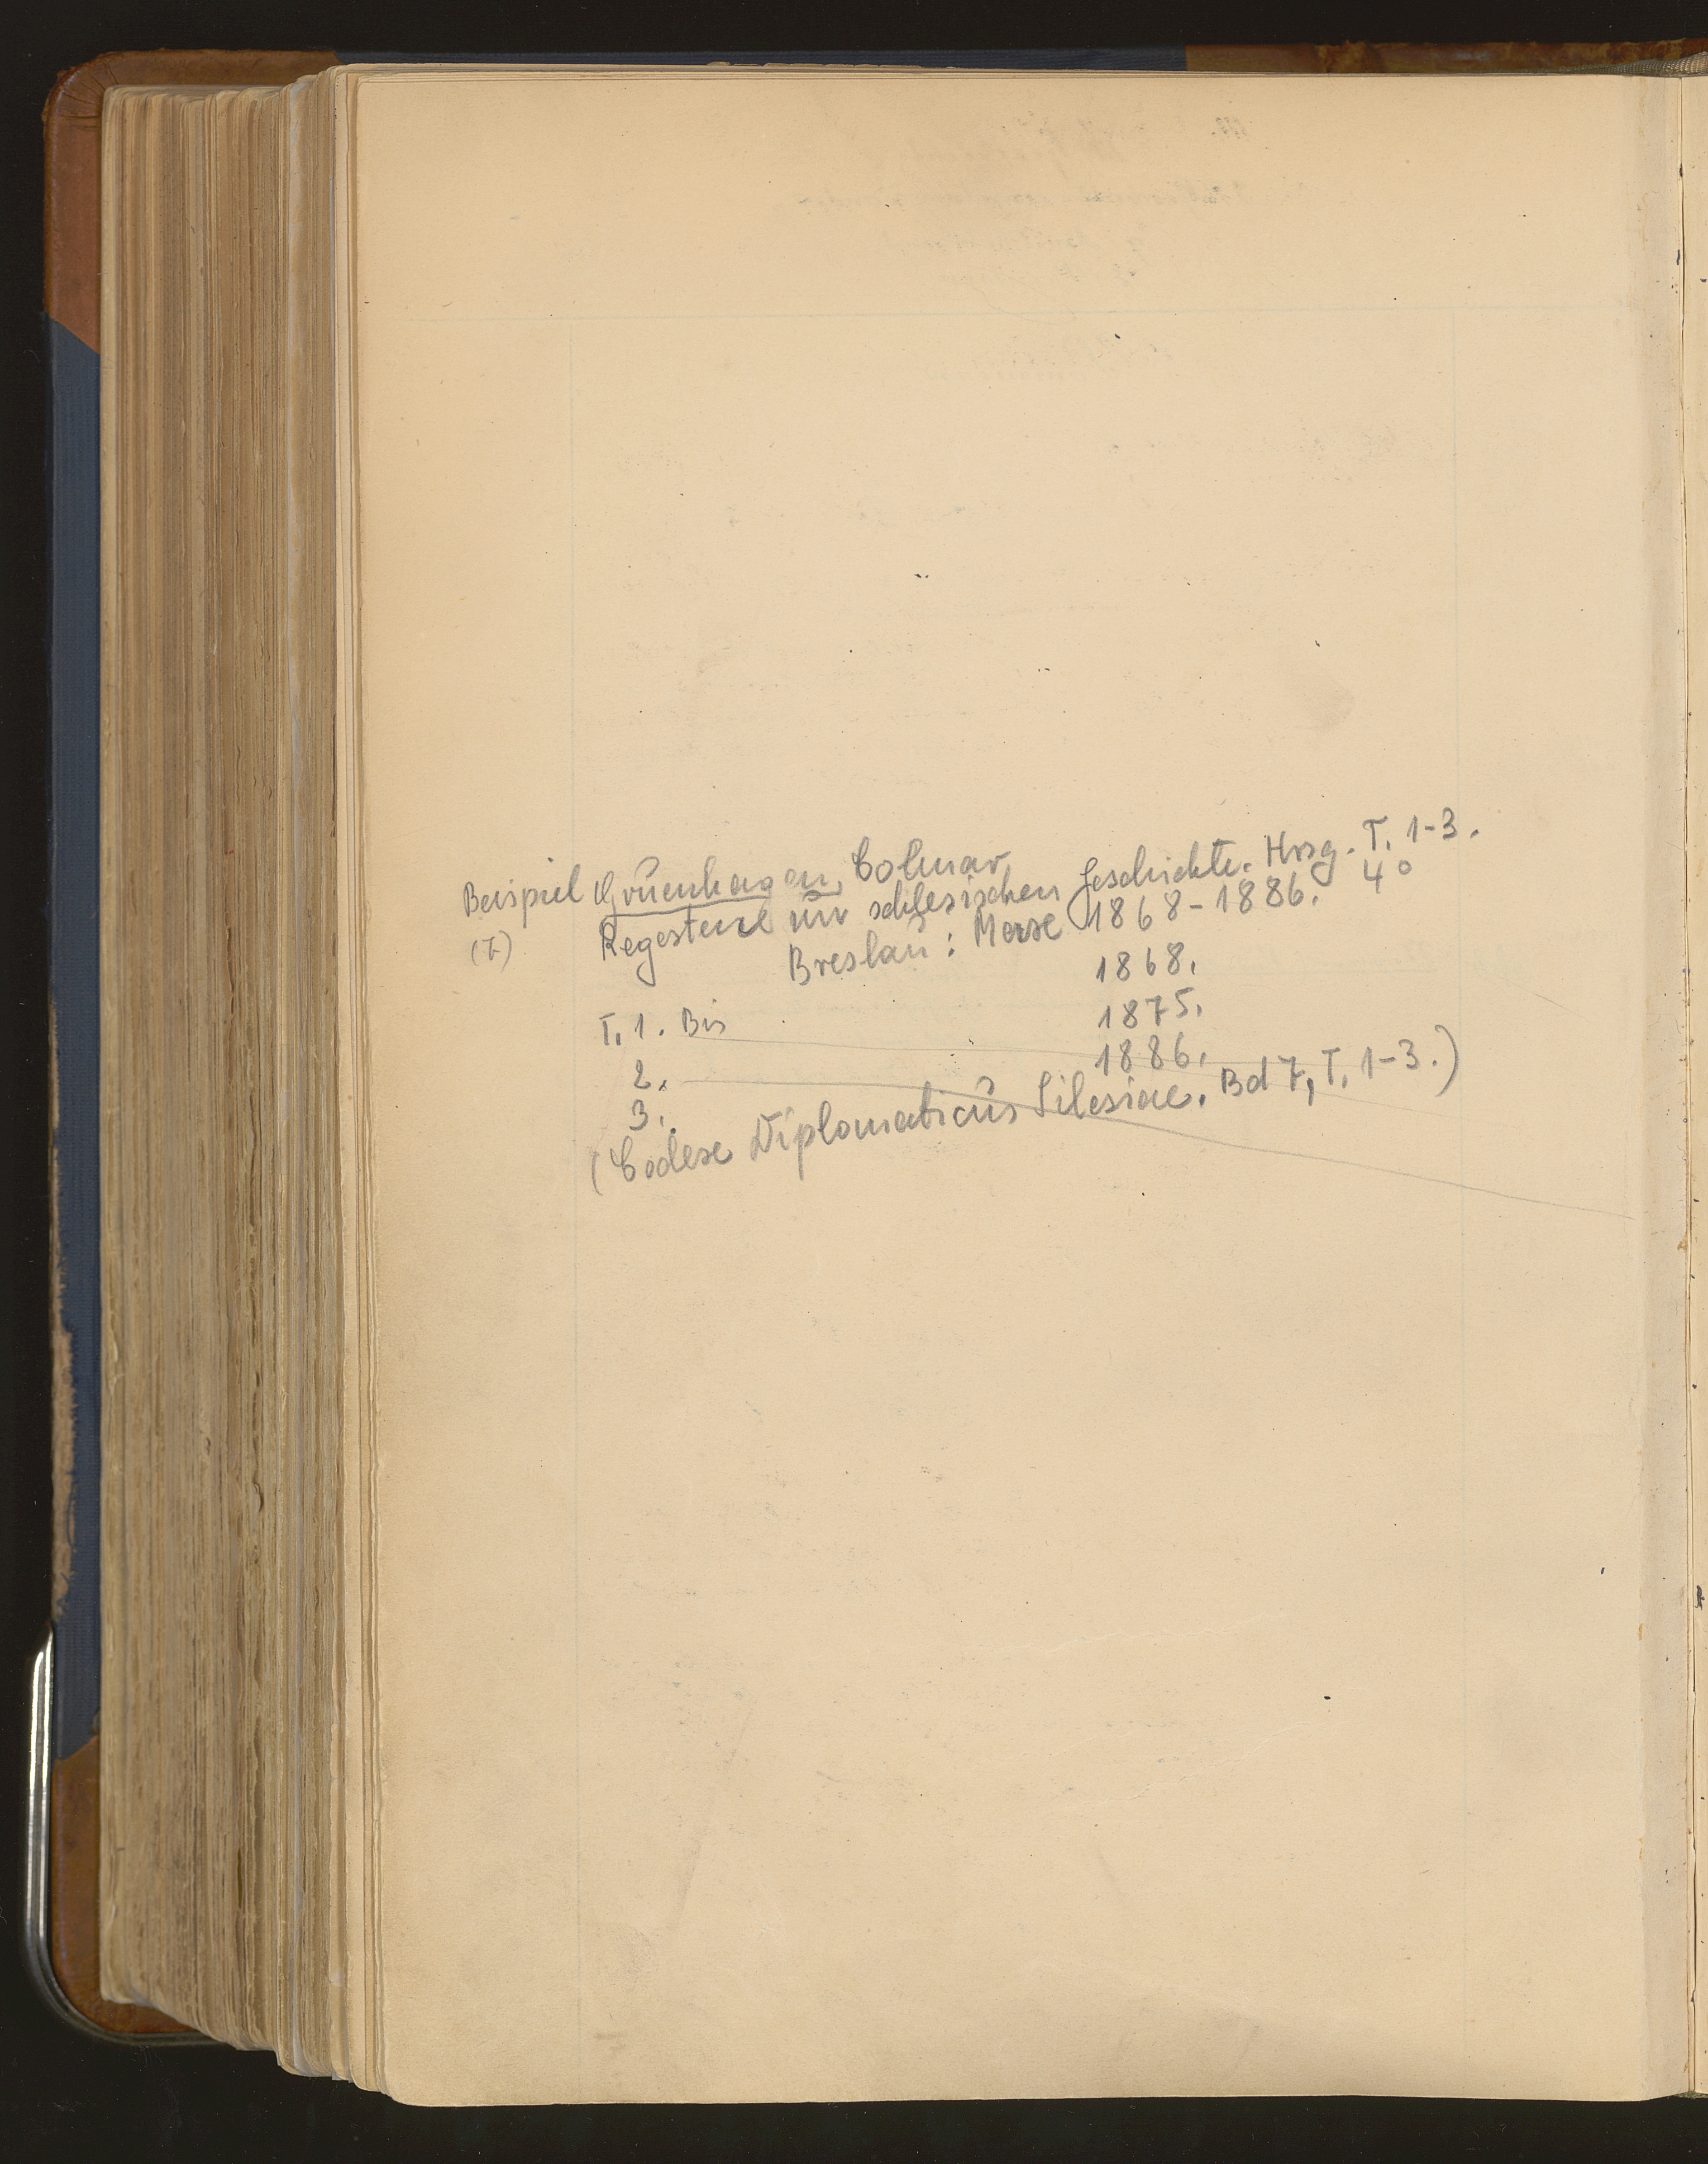 Beispiel Grünhagen, Colmar
(7)
Regesten zur schlesischen Geschichte. Hrsg. T. 1-3.
Breslau: Max 1868-1886. 4°
T. 1. Bis 1868.
2. 1875.
3. 1886.
(Codex Diplomaticus Silesiae. Bd 7, T. 1-3.)